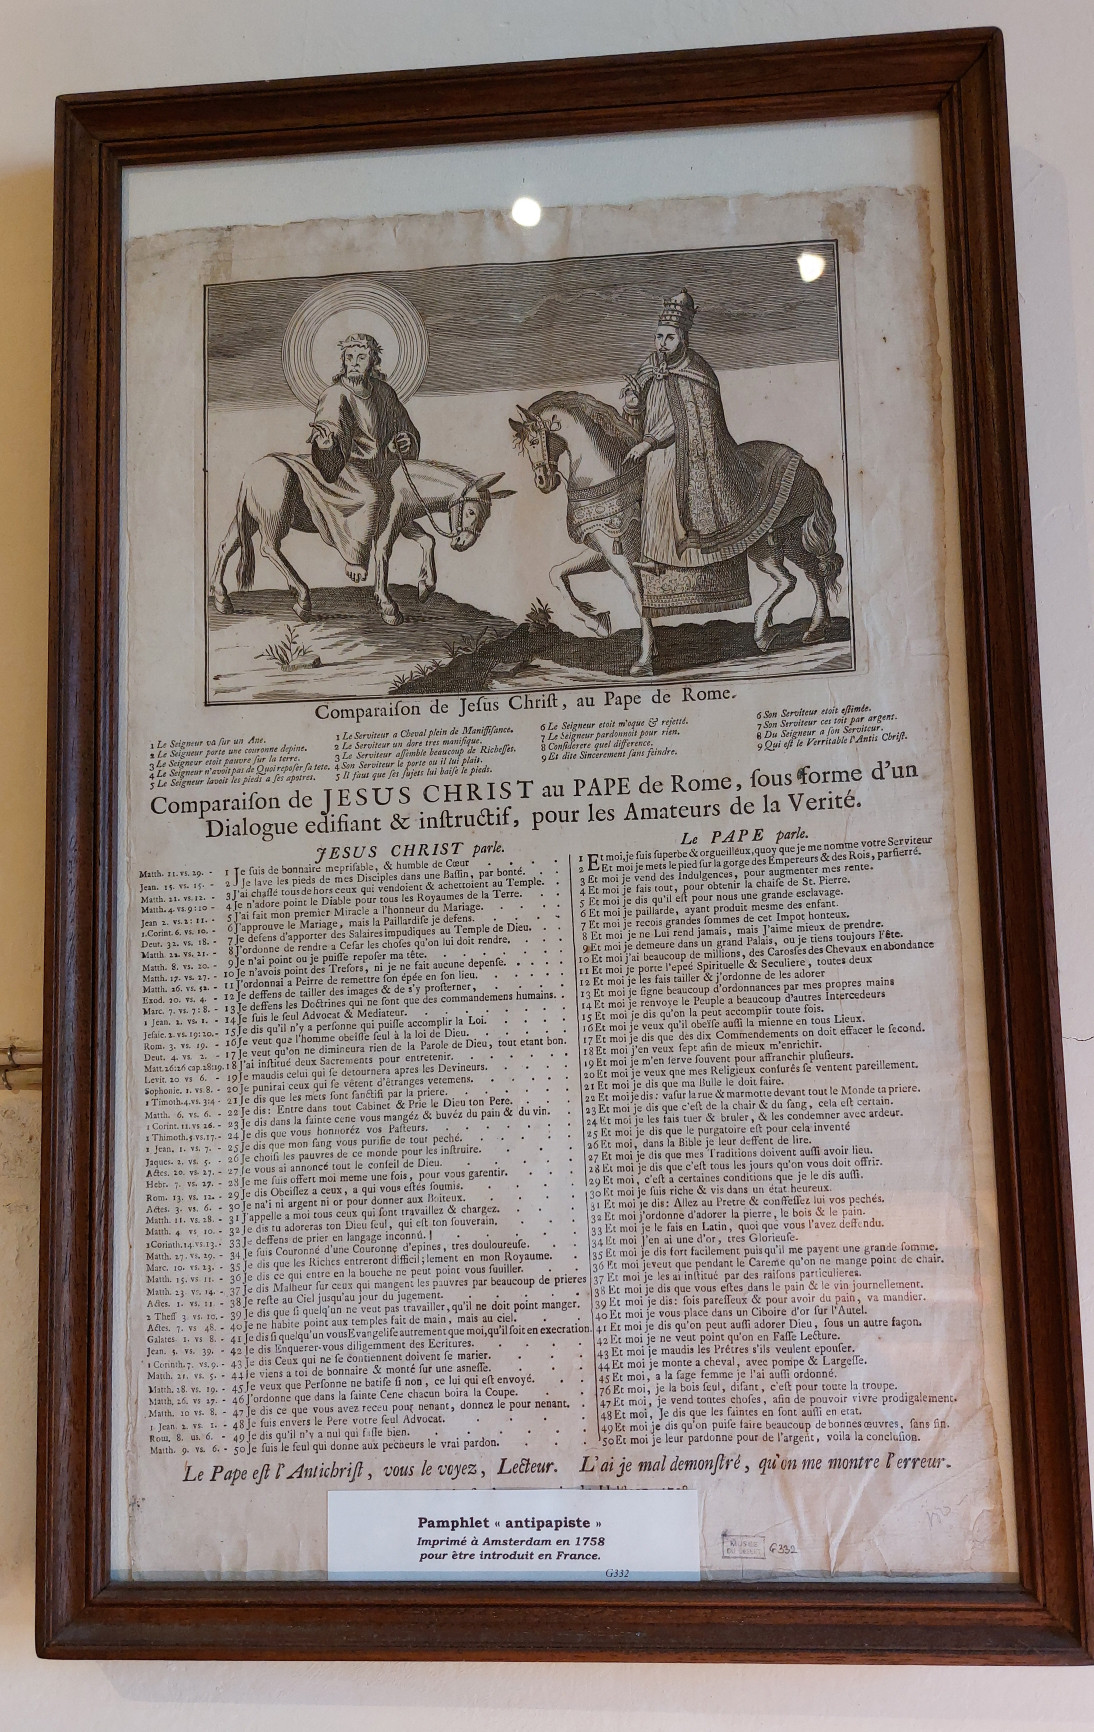 Comparaiſon de Jeſus Chriſt, au Pape de Rome.
1 Le Seigneur va ſur un Ane.
2 Le Seigneur porte une couronne depine.
3 Le Seigneur etoit pauvre ſur la terre.
4 Le Seigneur n'avoit pas de Quoi repoſer ſa tete.
5 Le Seigneur lavoit les pieds a ſes apotres.
1 Le Serviteur a Cheval plein de Maniffiſance.
2 Le Serviteur un dore tres manifique.
3 Le Serviteur aſſemble beaucoup de Richeſſes.
4 Son Serviteur le porte ou il lui plait.
5 Il faut que ſes ſujets lui baiſe le pieds.
6 Le Seigneur etoit m'oque & rejetté.
7 Le Seigneur pardonnoit pour rien.
8 Conſiderere quel difference.
9 Et dite Sincerement ſans feindre.
6 Son Serviteur etoit eſtimée.
7 Son Serviteur ces toit par argent.
8 Du Seigneur a ſon Serviteur.
9 Qui eſt le Verritable l'Antis Chriſt.
Comparaiſon de JESUS CHRIST au PAPE de Rome, ſous forme d'un
Dialogue edifiant & inſtructif, pour les Amateurs de la Verité.
JESUS CHRIST parle.
Matth. 11. vs. 29. - 1 Je ſuis de bonnaire mepriſable, & humble de Cœur
Jean. 15. vs. 15. - 2 Je lave les pieds de mes Disciples dans une Baſſin, par bonté.
Matth. 21. vs. 12. - 3 J'ai chaſſé tous dehors ceux qui vendoient & achettoient au Temple.
Matth. 4. vs. 9: 10 - 4 Je n'adore point le Diable pour tous les Royaumes de la Terre.
Jean 2. vs. 2: 11. - 5 J'ai fait mon premier Miracle a l'honneur du Mariage.
1. Corint. 6. vs. 10. - 6 J'approuve le Mariage, mais la Paillardiſe je defens.
Deut. 32. vs. 18. - 7 Je defens d'apporter des Salaires impudiques au Temple de Dieu.
Matth 22. vs. 21. - 8 J'ordonne de rendre a Ceſar les choſes qu'on lui doit rendre.
Matth. 8. vs. 20. - 9 Je n'ai point ou je puiſſe repoſer ma tête.
Matth. 17. vs. 27. - 10 Je n'avois point des Treſors, ni je ne fait aucune depenſe.
Matth. 26. vs. 52. - 11 J'ordonnai a Peirre de remettre ſon épée en ſon lieu.
Exod. 20. vs. 4. - 12 Je deffens de tailler des images & de s'y proſterner,
Marc. 7. vs. 7: 8. - 13 Je deffens les Doctrines qui ne ſont que des commandemens humains.
1 Jean. 2. vs. 1. - 14 Je ſuis le ſeul Advocat & Mediateur.
Jeſaie. 2. vs. 19: 20. - 15 Je dis qu'il n'y a perſonne qui puiſſe accomplir la Loi.
Rom. 3. vs. 19. - 16 Je veut que l'homme obeiſſe ſeul à la loi de Dieu.
Deut. 4. vs. 2. - 17 Je veut qu'on ne diminuera rien de la Parole de Dieu, tout etant bon.
Matt. 26: 26 cap. 28: 19. 18 J'ai inſtitué deux Sacrements pour entretenir.
Levit. 20 vs 6. - 19 Je maudis celui qui ſe detournera apres les Devineurs.
Sophonie. 1. vs. 8. - 20 Je punirai ceux qui ſe vêtent d'étranges vetemens.
1 Timoth. 4. vs. 3: 4 - 21 Je dis que les mets ſont ſanctifi par la priere.
Matth. 6. vs. 6. - 22 Je dis: Entre dans tout Cabinet & Prie le Dieu ton Pere.
1 Corint. 11. vs 26. - 23 Je dis dans la ſainte cene vous mangéz & buvéz du pain & du vin.
1 Thimoth. 5 vs. 17. - 24 Je dis que vous honnoréz vos Paſteurs.
1 Jean. 1. vs. 7. - 25 Je dis que mon ſang vous purifie de tout peché.
Jaques. 2. vs. 5. - 26 Je choiſi les pauvres de ce monde pour les inſtruire.
Actes. 20. vs. 27. - 27 Je vous ai annoncé tout le conſeil de Dieu.
Hebr. 7. vs. 27. - 28 Je me ſuis offert moi meme une fois, pour vous garentir.
Rom. 13. vs. 12. - 29 Je dis Obeiſſez a ceux, a qui vous eſtés ſoumis.
Actes. 3. vs. 6. - 30 Je na'i ni argent ni or pour donner aux Boiteux.
Matth. 11. vs. 28. - 31 J'appelle a moi tous ceux qui ſont travaillez & chargez.
Matth. 4 vs 10. - 32 Je dis tu adoreras ton Dieu ſeul, qui eſt ton ſouverain.
1 Corinth. 14. vs. 13. - 33 Je deffens de prier en langage inconnû.
Matth. 27. vs. 29. - 34 Je ſuis Couronné d'une Couronne d'epines, tres douloureuſe.
Marc. 10. vs. 23. - 35 Je dis que les Riches entreront difficilement en mon Royaume.
Matth. 15. vs 11. - 36 Je dis ce qui entre en la bouche ne peut point vous ſouiller.
Matth. 23 vs. 14. - 37 Je dis Malheur ſur ceux qui mangent les pauvres par beaucoup de prieres
Actes. 1. vs. 11. - 38 Je reſte au Ciel jusqu'au jour du jugement.
2 Theſſ 3. vs. 10. - 39 Je dis que ſi quelq'un ne veut pas travailler, qu'il ne doit point manger.
Actes. 7. vs 48. - 40 Je ne habite point aux temples fait de main, mais au ciel.
Galates. 1. vs 8. - 41 Je dis ſi quelqu'un vous Evangeliſe autrement que moi, qu'il ſoit en execration.
Jean. 5. vs. 39. - 42 Je dis Enquerer-vous diligemment des Ecritures.
1 Corinth. 7. vs. 9. - 43 Je dis Ceux qui ne ſe contiennent doivent ſe marier.
Matth. 21. vs. 5. - 44 Je viens a toi de bonnaire & monté ſur une asneſſe.
Matth. 28. vs. 19. - 45 Je veux que Perſonne ne batiſe ſi non, ce lui qui eſt envoyé.
Matth. 26. vs 27. - 46 J'ordonne que dans la ſainte Cene chacun boira la Coupe.
Matth. 10 vs 8. - 47 Je dis ce que vous avez receu pour nenant, donnez le pour nenant.
1 Jean. 2. vs. 1. - 48 Je ſuis envers le Pere votre ſeul Advocat.
Rom. 8. us. 6. - 49 Je dis qu'il n'y a nul qui faſſe bien.
Matth. 9. vs. 6. - 50 Je ſuis le ſeul qui donne aux pecheurs le vrai pardon.
Le PAPE parle.
1 Et moi, je ſuis ſuperbe & orgueilleux, quoy que je me nomme votre Serviteur
2 Et moi je mets le pied ſur la gorge des Empereurs & des Rois, par fierré.
3 Et moi je vend des Indulgences, pour augmenter mes rente.
4 Et moi je fais tout, pour obtenir la chaiſe de St. Pierre.
5 Et moi je dis qu'il eſt pour nous une grande esclavage.
6 Et moi je paillarde, ayant produit mesme des enfant.
7 Et moi je recois grandes ſommes de cet Impot honteux.
8 Et moi je ne Lui rend jamais, mais J'aime mieux de prendre.
9 Et moi je demeure dans un grand Palais, ou je tiens toujours l'ête.
10 Et moi j'ai beaucoup de millions, des Caroſſes des Chevaux en abondance
11 Et moi je porte l'epeé Spirituelle & Seculiere, toutes deux
12 Et moi je les fais tailler & j'ordonne de les adorer
13 Et moi je ſigne beaucoup d'ordonnances par mes propres mains
14 Et moi je renvoye le Peuple a beaucoup d'autres Intercedeurs
15 Et moi je dis qu'on la peut accomplir toute fois.
16 Et moi je veux qu'il obeïſſe auſſi la mienne en tous Lieux.
17 Et moi je dis que des dix Commendements on doit effacer le ſecond.
18 Et moi j'en veux ſept afin de mieux m'enrichir.
19 Et moi je m'en ſerve ſouvent pour affranchir pluſieurs.
20 Et moi je veux que mes Religieux conſurés ſe ventent pareillement.
21 Et moi je dis que ma Bulle le doit faire.
22 Et moi je dis: va ſur la rue & marmotte devant tout le Monde ta priere.
23 Et moi je dis que c'eſt de la chair & du ſang, cela eſt certain.
24 Et moi je les fais tuer & bruler, & les condemner avec ardeur.
25 Et moi je dis que le purgatoire eſt pour cela inventé
26 Et moi, dans la Bible je leur deffent de lire.
27 Et moi je dis que mes Traditions doivent auſſi avoir lieu.
28 Et moi je dis que c'eſt tous les jours qu'on vous doit offrir.
29 Et moi, c'eſt a certaines conditions que je le dis auſſi.
30 Et moi je ſuis riche & vis dans un état heureux.
31 Et moi je dis: Allez au Pretre & conffeſſez lui vos pechés.
32 Et moi j'ordonne d'adorer la pierre, le bois & le pain.
33 Et moi je le fais en Latin, quoi que vous l'avez deffendu.
34 Et moi j'en ai une d'or, tres Glorieuſe.
35 Et moi je dis fort facilement puisqu'il me payent une grande ſomme.
36 Et moi je veut que pendant le Careme qu'on ne mange point de chair.
37 Et moi je les ai inſtitué par des raiſons particulieres.
38 Et moi je dis que vous eſtes dans le pain & le vin journellement.
39 Et moi je dis: ſois pareſſeux & pour avoir du pain, va mandier.
40 Et moi je vous place dans un Ciboire d'or ſur l'Autel.
41 Et moi je dis qu'on peut auſſi adorer Dieu, ſous un autre façon.
42 Et moi je ne veut point qu'on en Faſſe Lecture.
43 Et moi je maudis les Prêtres s'ils veulent epouſer.
44 Et moi je monte a cheval, avec pompe & Largeſſe.
45 Et moi, a la ſage femme je l'ai auſſi ordonné.
76 Et moi, je la bois ſeul, diſant, c'eſt pour toute la troupe.
47 Et moi, je vend toutes choſes, afin de pouvoir vivre prodigalement.
48 Et moi, Je dis que les ſaintes en ſont auſſi en etat.
49 Et moi je dis qu'on puiſe faire beaucoup de bonnes œuvres, ſans fin.
50 Et moi je leur pardonne pour de l'argent, voila la concluſion.
Le Pape eſt l'Antichriſt, vous le voyez, Lecteur. L'ai je mal demonſtré, qu'on me montre l'erreur.
Pamphlet « antipapiste »
Imprimé à Amsterdam en 1758
pour être introduit en France.
G332
MUSEE
DU DESERT
G332